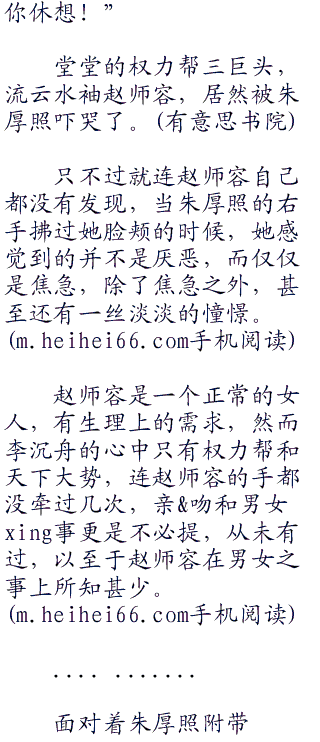 你休想！”
堂堂的权力帮三巨头，
流云水袖赵师容，居然被朱
厚照吓哭了。(有意思书院)
只不过就连赵师容自己
都没有发现，当朱厚照的右
手拂过她脸颊的时候，她感
觉到的并不是厌恶，而仅仅
是焦急，除了焦急之外，甚
至还有一丝淡淡的憧憬。
(m.heihei66.com手机阅读)
赵师容是一个正常的女
人，有生理上的需求，然而
李沉舟的心中只有权力帮和
天下大势，连赵师容的手都
没牵过几次，亲&吻和男女
xing事更是不必提，从未有
过，以至于赵师容在男女之
事上所知甚少。
(m.heihei66.com手机阅读)
.... .......
面对着朱厚照附带